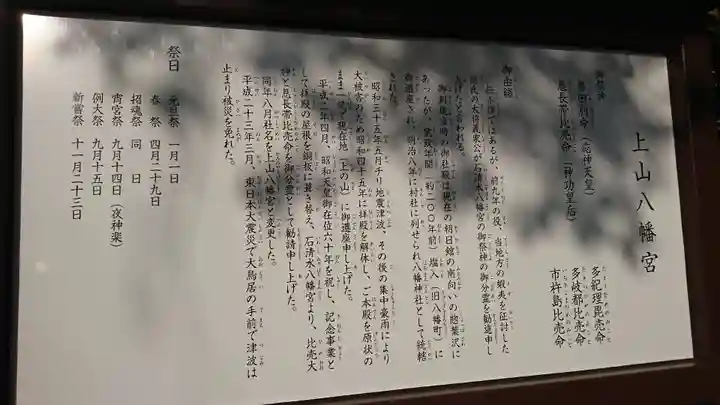 上山八幡宮
御祭神
誉田別命（応神天皇）
息長帯比売命（神功皇后）
多紀理毘売命
多岐都比売命
市杵島比売命
御由緒
任不詳ではあるが、前九年の役、当地方の蝦夷を征討した
源氏の大将義家公が石清水八幡宮の御祭神の御分霊を勧進申し
上げたと言われる。
御創建当時の御社殿は現在の朝日館の南向いの惣葉沢に
あったが、寛政年間（約二〇〇年前）塩入（旧八幡町）に
御遷座され、明治八年に村社に列せられ八幡神社として統轄
された。
昭和三十五年五月チリ地震津波、その後の集中豪雨により
大被害のため昭和四十五年に拝殿を解体し、ご本殿を原状の
まま現在地（上の山）に御遷座申し上げた。
平成二年四月、昭和天皇御在位六十年を祝し、記念事業と
して拝殿の屋根を銅板に葺き替え、石清水八幡宮より、比売大
神と息長帯比売命を御分霊として勧請申し上げた。
同年八月社名を上山八幡宮と変更した。
平成二十三年三月、東日本大震災で大鳥居の手前で津波は
止まり被災を免れた。
祭日
元旦祭 一月一日
春祭 四月二十九日
招魂祭 同日
宵宮祭 九月十四日（夜神楽）
例大祭 九月十五日
新嘗祭 十一月二十三日